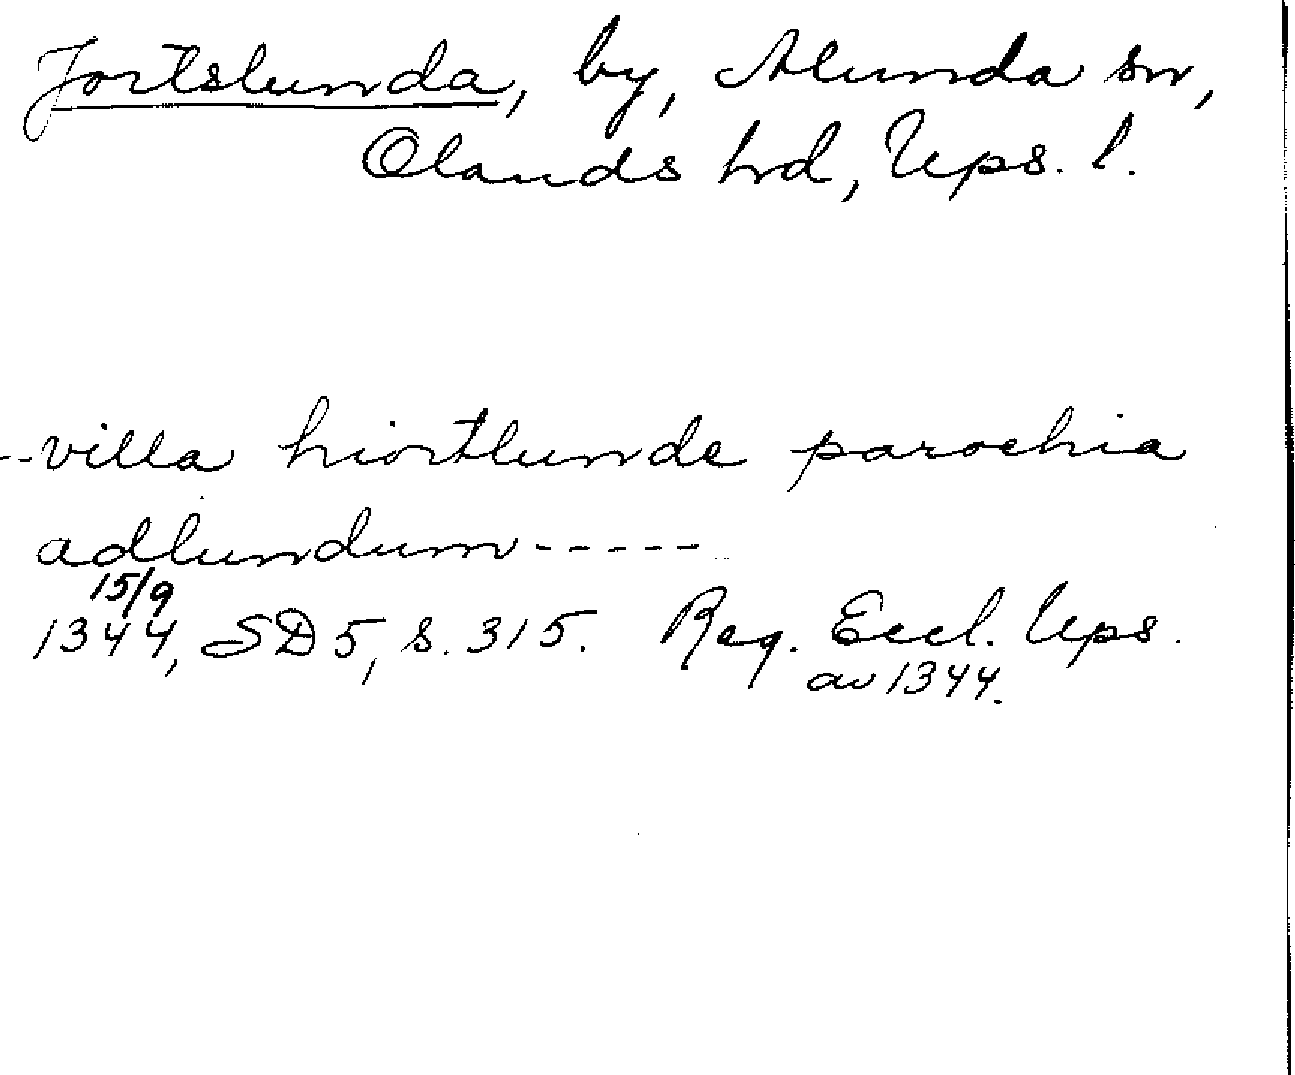 Jortslunda, by, Alunda sn,
Olands hd, Ups. l.
--villa hiortlunde parochia
adlundum-----
15/9
1344, SD 5, s. 315. Reg. Eccl. Ups.
av 1344.